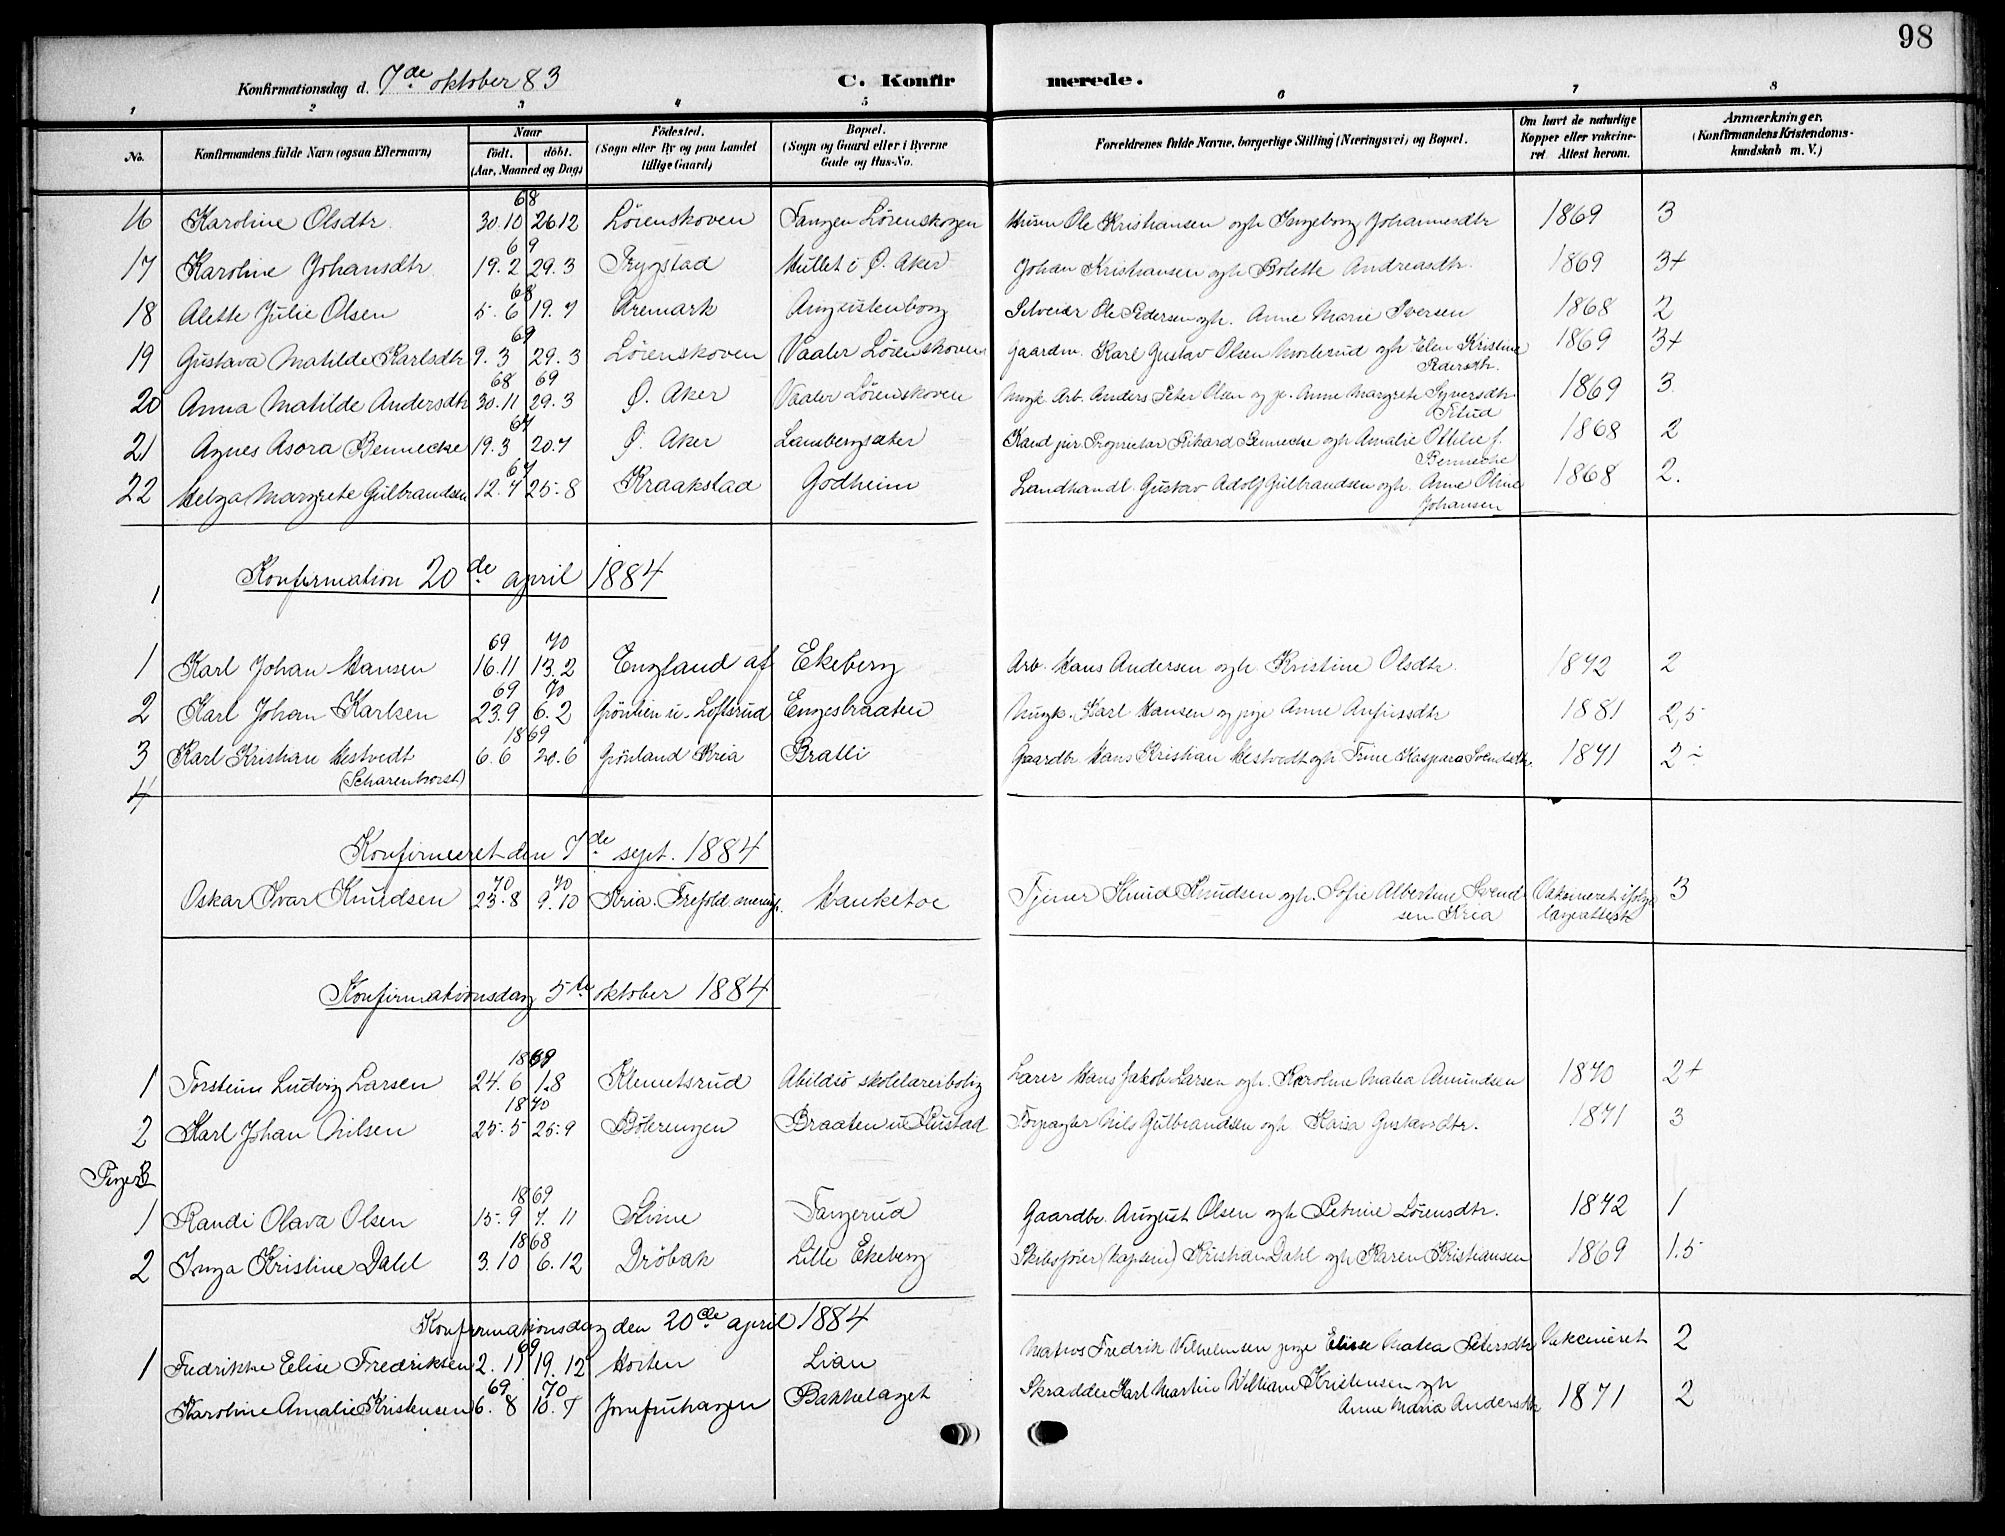 98
Konfirmationsdag d. 7de oktober 83 C. Konfirmerede.
1 2 3 4 5 6 7 8
No. Konfirmandens fulde Navn (ogsaa Efternavn) Naar födt. döbt. (Aar, Maaned og Dag) Födested. (Sogn eller By og paa Landet tillige Gaard) Bopæl. (Sogn og Gaard eller i Byerne Gade og Hus-No. Forældrenes fulde Navne, borgerlige Stilling (Næringsvei) og Bopæl. Om havt de naturlige Kopper eller vakcineret Attest herom. Anmærkninger. (Konfirmandens Kristendomskundskab m. V.)
68
16 Karoline Olsdtr 30.10 26.12 Lörenskoven Tangen Lörenskogen Husm Ole Kristiansen ogh Ingeborg Johannesdtr 1869 3
69
17 Karoline Johansdtr 19.2 29.3 Trygstad Hullet i Ö. Aker Johan Kristiansen ogh Bolette Andreasdtr. 1869 3+
68
18 Alette Julie Olsen 5.6 19.7 Aremark Augustenborg Selveier Ole Pedersen ogh. Anne Marie Iversen 1868 2
69
19 Gustava Matilde Karlsdtr 9.3 29.3 Lörenskoven Vaaler Lörenskoven Gaardm. Karl Gustav Olsen ogh Elen Kristine Pedersdtr. 1869 3+
68 69
20 Anna Matilde Andersdtr 30.11 29.3 Ö. Aker Vaaler Lörenskoven Ungk. Arb. Anders Peter Olsen og pi. Anne Margrete Syversdtr 1869 3
67
21 Agnes Asora Bennecke 19.3 20.7 Ö. Aker Kand jur Proprietær Rikard Bennecke ogh Amalie Ottilie f. Bennecke 1868 2
67
22 Helga Margrete Gulbrandsen 12.7 25.8 Kraakstad Godheim Landhandl. Gustav Adolf Gulbrandsen ogh. Anne Oline Johansen 1868 2.
Konfirmation 20de april 1884
1
69 70
1 Karl Johan Hansen 16.11 13.2 England af Ekeberg Arb. Hans Andersen ogh. Kristine Olsdtr. 1872 2
69 70
2 Karl Johan Karlsen 23.9 6.2 Gröntien u. Loftsrud Engesbraaten Ungk. Karl Hansen og pige Anne 1881 2,5
1869
3 Karl Kristian Hestvedt 6.6 20.6 Grönland Kria Bratli Gaardbr Hans Kristian Hestvedt ogh Trine Kaspara Svendsdtr. 1871 2÷
(Scharenhorst)
4
Konfirmeeret den 7de sept. 1884
70 70
Oskar Ivar Knudsen 23.8 9.10 Kria. Trefold. menigh. Hauketoe Tjener Knud Knudsen ogh. Sofie Albertine Svendsen Kria Vaksineret ifölge lægeattest 3
Konfirmationsdag 5te oktober 1884
1869
1 Torstein Ludvig Larsen 24.6 1.8 Klemetsrud Abildsö skolelærerbolig Lærer Hans Jakob Larsen ogh. Karoline Matea Amundsen 1870 2+
1870
2 Karl Johan Nilsen 25.5 25.9 Bölerengen Braaten u Rustad Forpagter Nils Gulbrandsen ogh Kaisa Gustavsdtr. 1871 3
Piger B
1869
1 Randi Olava Olsen 15.9 7.11 Skine Tangerud Gaardbr. August Olsen ogh Petrine Lörensdtr. 1872 1
1868
2 Inga Kristine Dahl 3.10 6.12 Dröbak Lille Ekeberg Skibsförer (kaptein) Kristian Dahl ogh Karen Kristiansen 1869 1.5
Konfirmationsdag den 20de april 1884
69
1 Fredrikke Elise Fredriksen 2.11 19.12 Horten Lian Matros Fredrik Vilhelmsen pige Elise Matea Petersdtr Vakcineret 2
69 70
Karoline Amalie Kristensen 6.8 10.7 Jomfruhagen Bakkelaget Skrædder Karl Martin William Kristensen ogh Anne Maria Andersdtr 1871 2